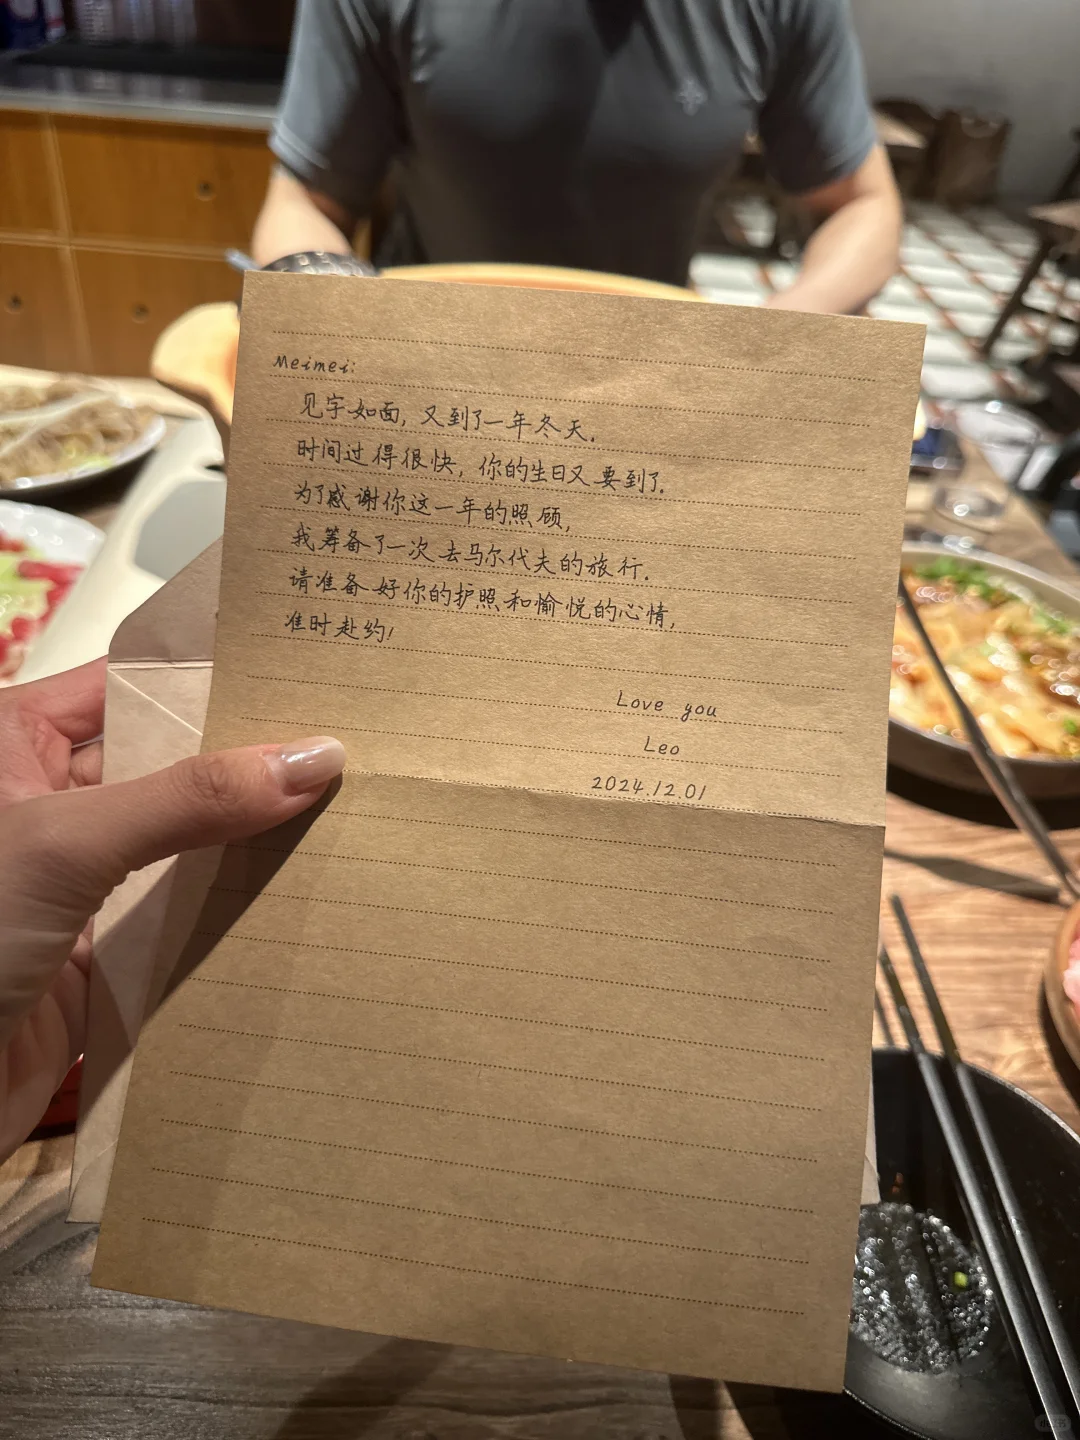 Meimei:
见字如面，又到了一年冬天.
时间过得很快，你的生日又要到了.
为了感谢你这一年的照顾,
我筹备了一次去马尔代夫的旅行.
请准备好你的护照和愉悦的心情,
准时赴约!
Love you
Leo
2024.12.01